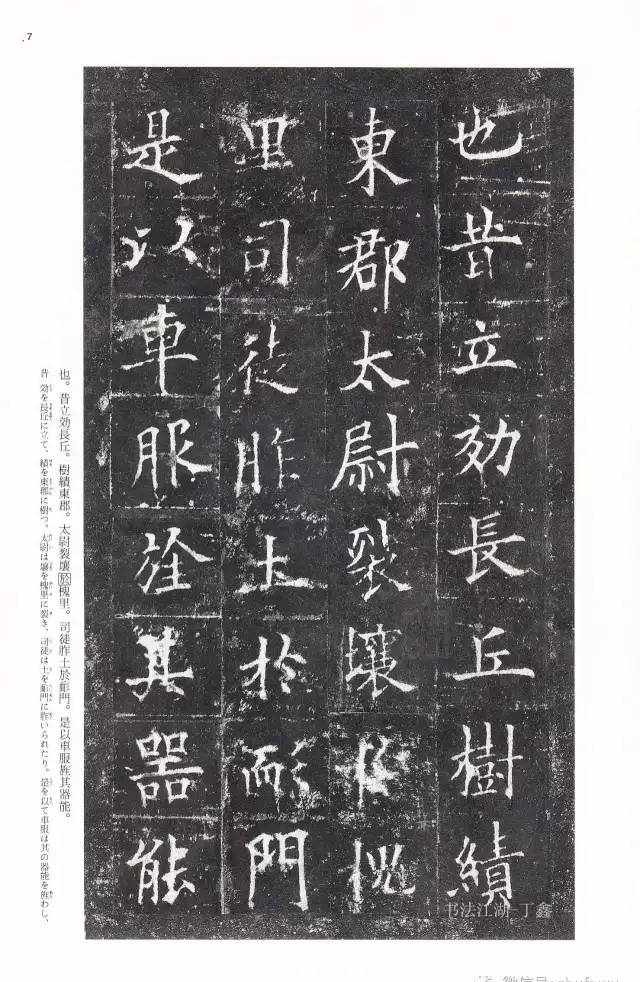 7
也昔立効長丘樹績
東郡太尉裂壤於槐
里司徒胙土於耏門
是以車服旌其器能
也。昔立効長丘。樹績東郡。太尉裂壤於槐里。司徒胙土於耏門。是以車服旌其器能。
昔効を長丘に立て、績を東郡に樹つ。太尉は壤を槐里に裂き、司徒は土を耏門に胙いられたり。是を以て車服は其の器能を旌わし、
书法江湖-丁鑫